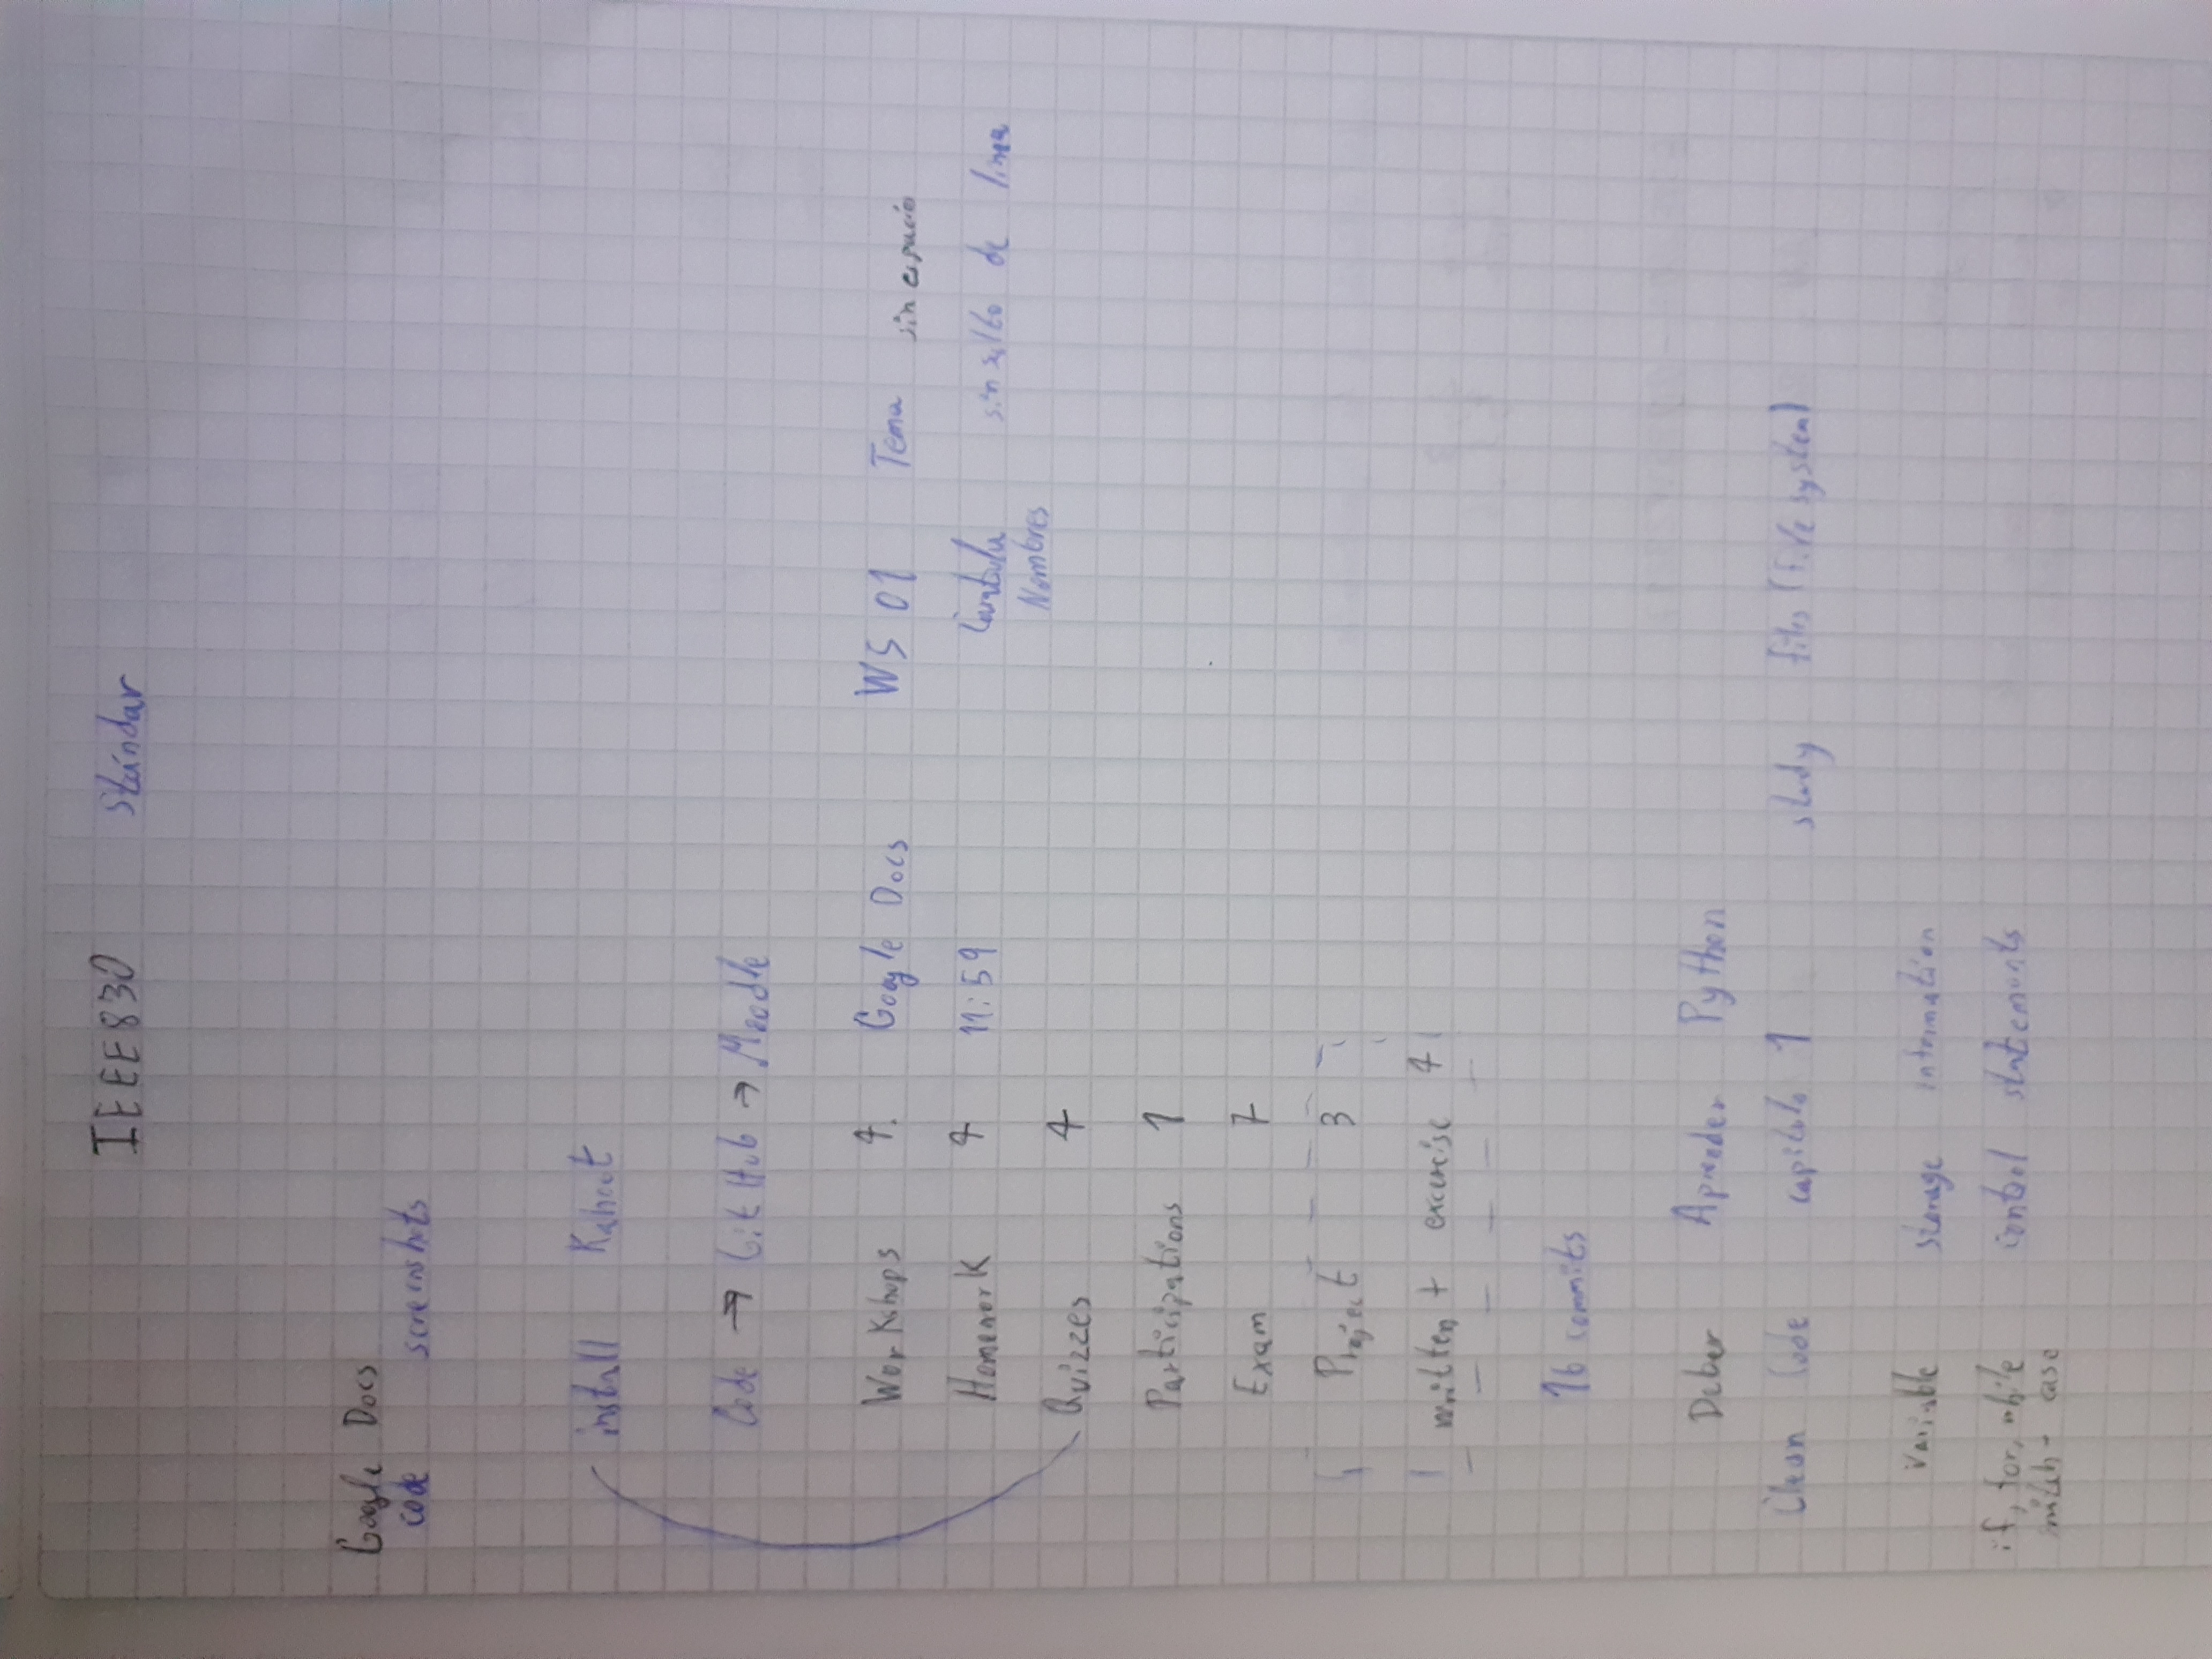 IEEE830 Stándar
Google Docs
code screenshots
install Kahoot
Code → GitHub → Moodle
Workshops 4. Google Docs WS 01 Tema sin espacio
Homework 4 11:59 Caratula sin salto de linea
Nombres
Quizzes 4
Participations 1
Exam 7
Project 3
written + excercise 4
16 commits
Deber Aprender Python
Clean Code capitulo 1 study files (file system)
variable storage information
if, for, while control statements
switch - case